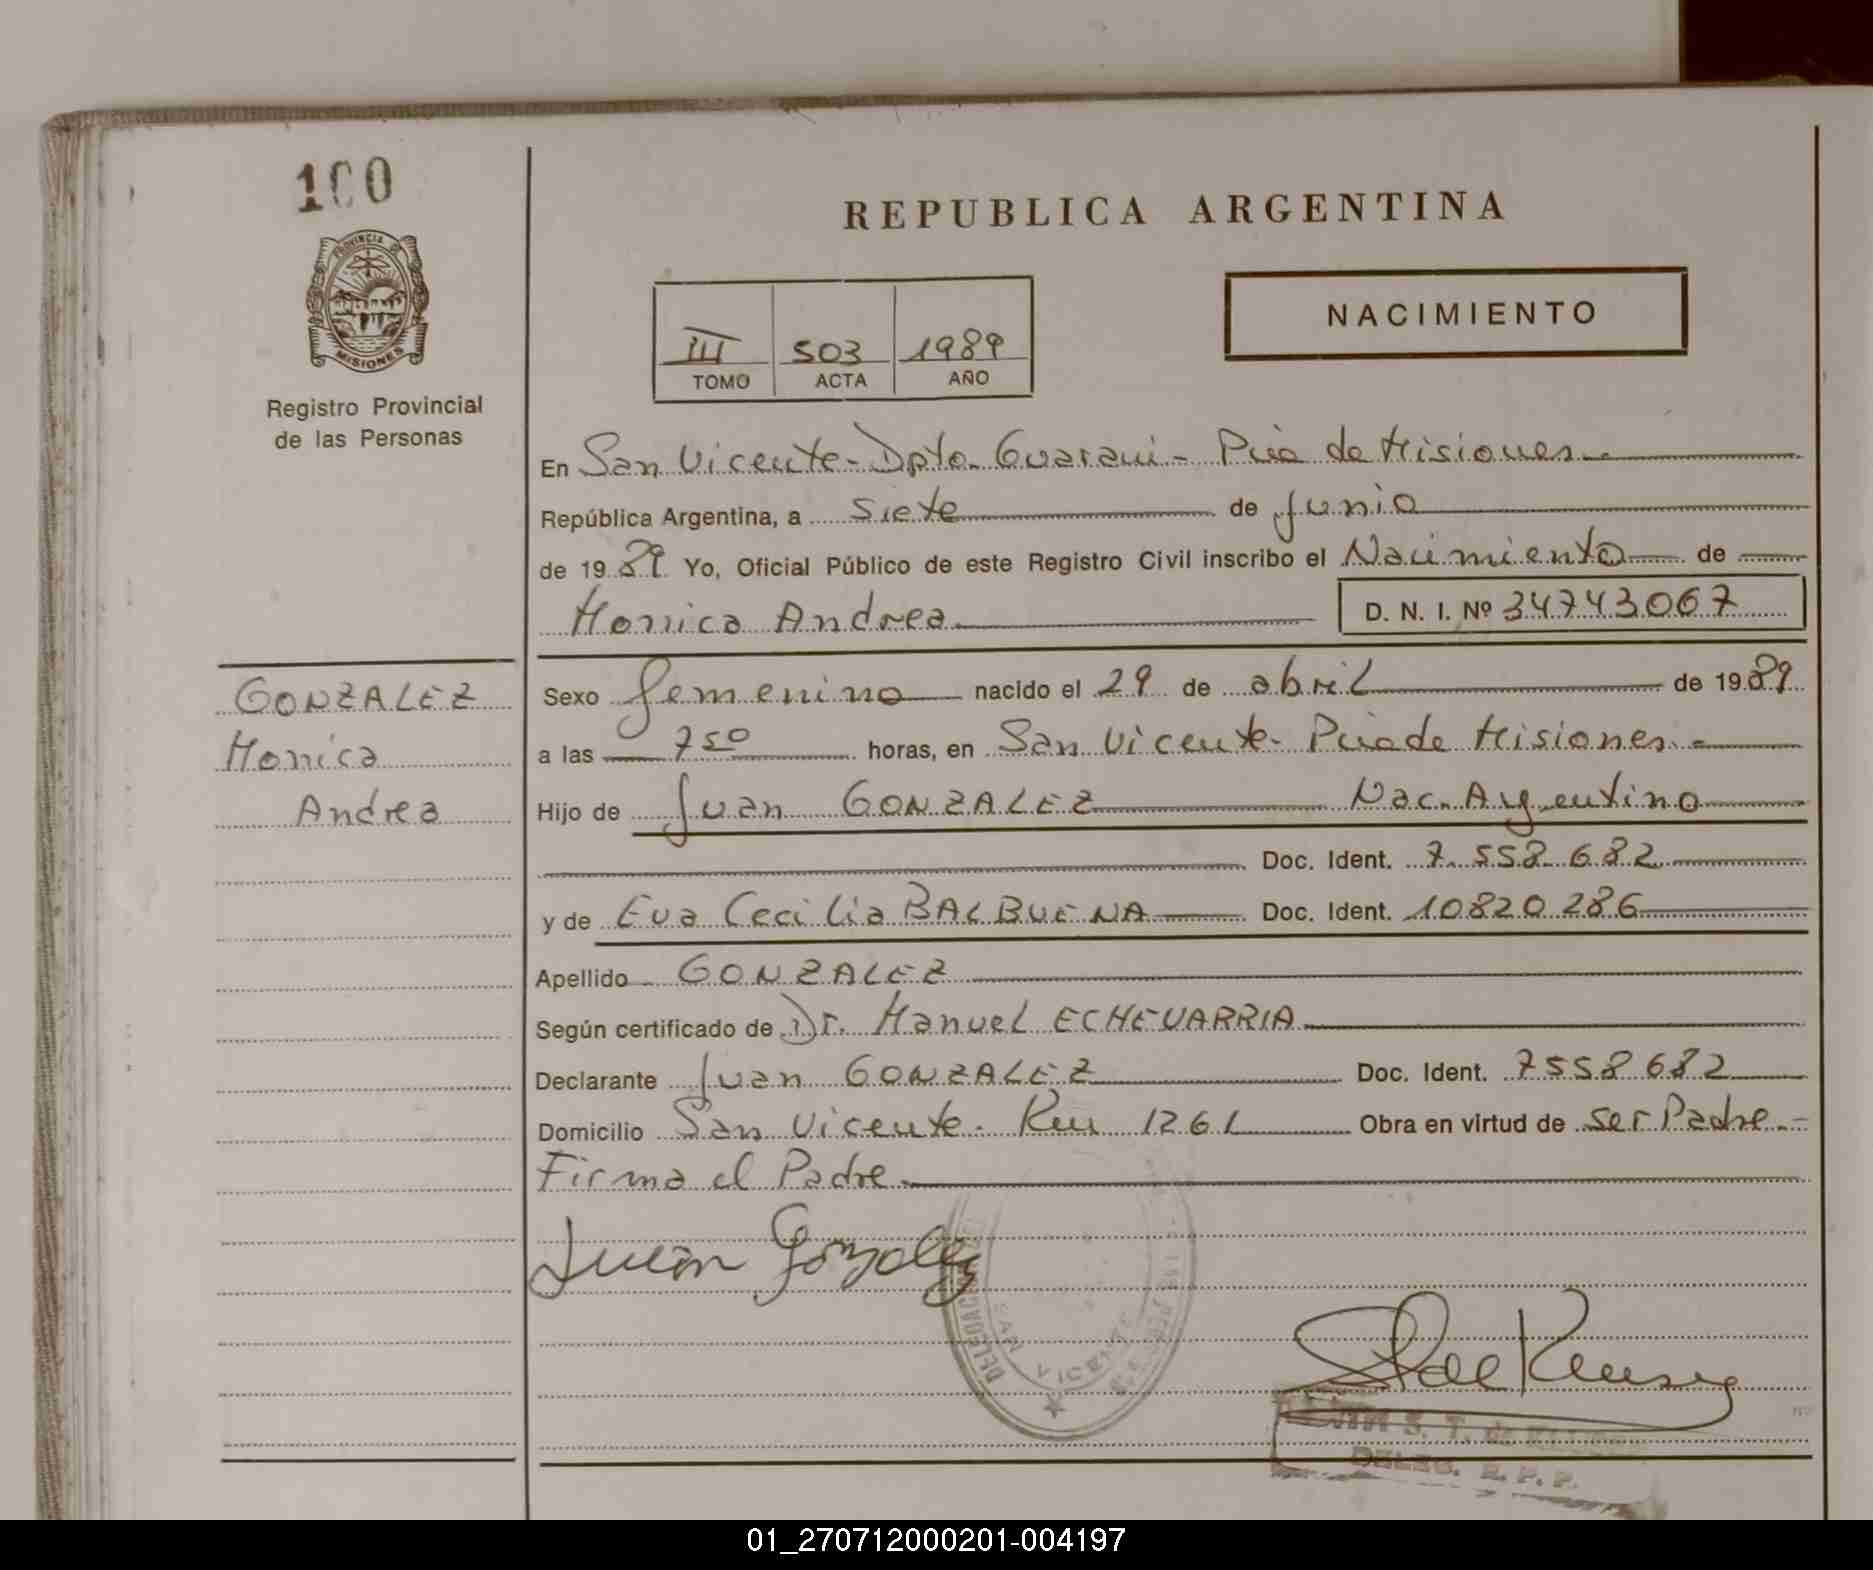 100
PROVINCIA DE
MISIONES
Registro Provincial
de las Personas
REPUBLICA ARGENTINA
III 503 1989
TOMO ACTA AÑO
NACIMIENTO
En San Vicente - Dpto. Guarani - Pcia de Misiones.-
República Argentina, a siete de junio
de 1989 Yo, Oficial Público de este Registro Civil inscribo el Nacimiento de
Monica Andrea D. N. I. Nº 34743067
GONZALEZ
Monica
Andrea
Sexo femenino nacido el 29 de abril de 1989
a las 7 50 horas, en San Vicente - Pcia de Misiones.-
Hijo de Juan GONZALEZ Nac. Argentino
Doc. Ident. 7.558.682
y de Eva Cecilia BALBUENA Doc. Ident. 10820.286
Apellido GONZALEZ
Según certificado de Dr. Manuel ECHEVARRIA
Declarante Juan GONZALEZ Doc. Ident. 7558682
Domicilio San Vicente - Km 1261 Obra en virtud de ser Padre.-
Firma el Padre
Juan Gonzalez
DELEGACION
SAN VICENTE
S. T. de
DELEG. R. P. P.
01_270712000201-004197